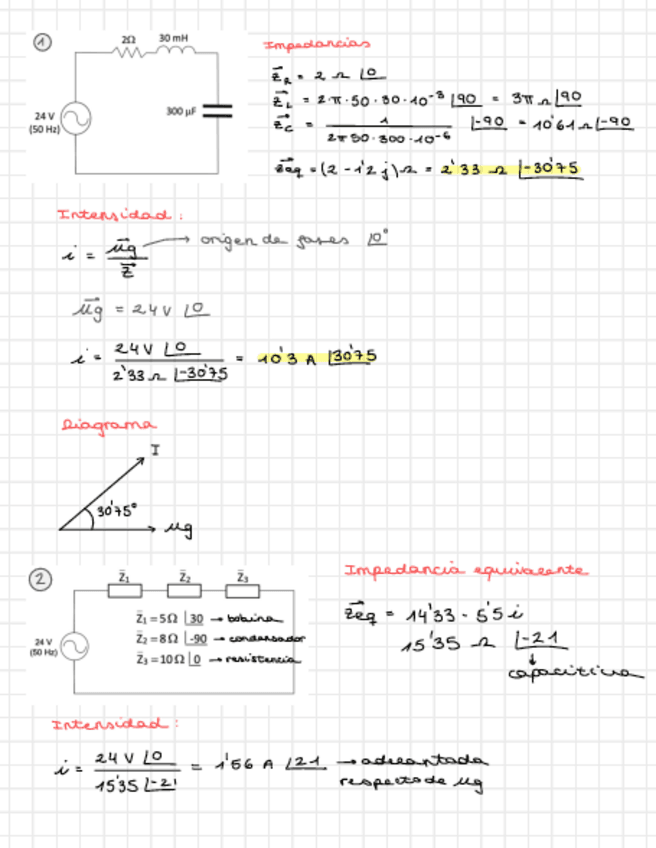 1
2Ω 30 mH
24 V
(50 Hz)
300 µF
Impedancias
Z⃗R = 2 Ω |0
Z⃗L = 2·π·50·30·10⁻³ |90 = 3π Ω |90
Z⃗C = 1 / 2π 50·300·10⁻⁶ |-90 = 10'61 Ω |-90
Z⃗eq = (2 - 1'2 j) Ω = 2'33 Ω |-30'75
Intensidad:
i = u⃗g / Z⃗ → origen de fases |0°
u⃗g = 24 V |0
i = 24 V |0 / 2'33 Ω |-30'75 = 10'3 A |30'75
Diagrama
I
30'75°
ug
2
Z̄1 Z̄2 Z̄3
24 V
(50 Hz)
Z̄1 = 5 Ω |30 → bobina
Z̄2 = 8 Ω |-90 → condensador
Z̄3 = 10 Ω |0 → resistencia
Impedancia equivalente
Z⃗eq = 14'33 - 5'5 i
15'35 Ω |-21
capacitiva
Intensidad:
i = 24 V |0 / 15'35 |-21 = 1'56 A |21 → adelantada
respecto de ug